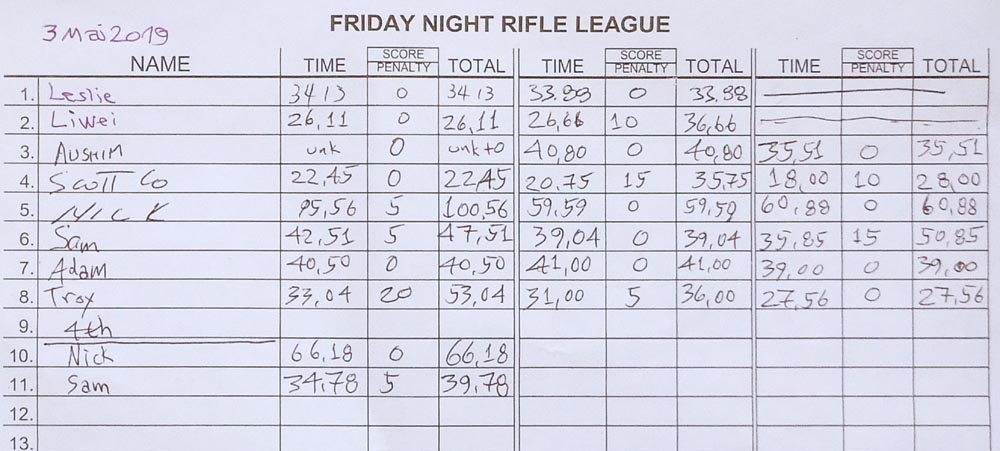 3 Mai 2019
FRIDAY NIGHT RIFLE LEAGUE
NAME TIME SCORE PENALTY TOTAL TIME SCORE PENALTY TOTAL TIME SCORE PENALTY TOTAL
1. Leslie 34 13 0 34 13 33.89 0 33.98
2. Liwei 26,11 0 26,11 26,66 10 36,66
3. AUSHIM unk 0 unk+0 40,80 0 40,80 35,51 0 35,51
4. Scott Co 22,45 0 22,45 20,75 15 35,75 18,00 10 28,00
5. NICK 95,56 5 100,56 59,59 0 59,59 60,88 0 60,88
6. Sam 42,51 5 47,51 39,04 0 39,04 35,85 15 50,85
7. Adam 40,50 0 40,50 41,00 0 41,00 39,00 0 39,00
8. Troy 33,04 20 53,04 31,00 5 36,00 27,56 0 27,56
9. 4th
10. Nick 66,18 0 66,18
11. Sam 34,78 5 39,78
12.
13.